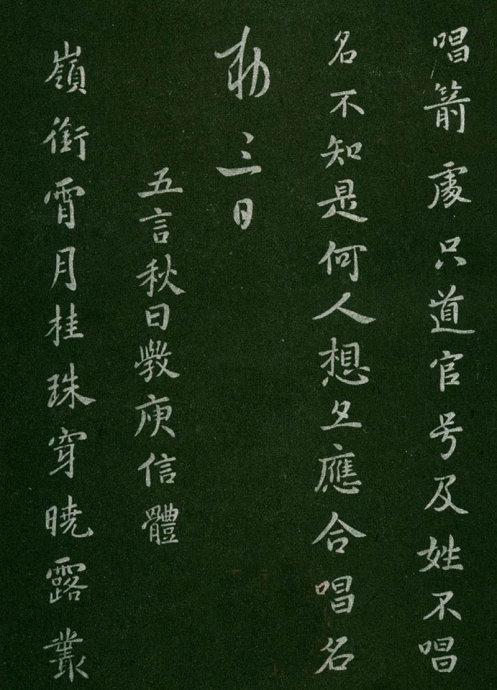 唱箭處只道官号及姓不唱
名不知是何人想必應合唱名
勅 三日
五言秋日斅庾信體
嶺銜霄月桂珠穿曉露叢